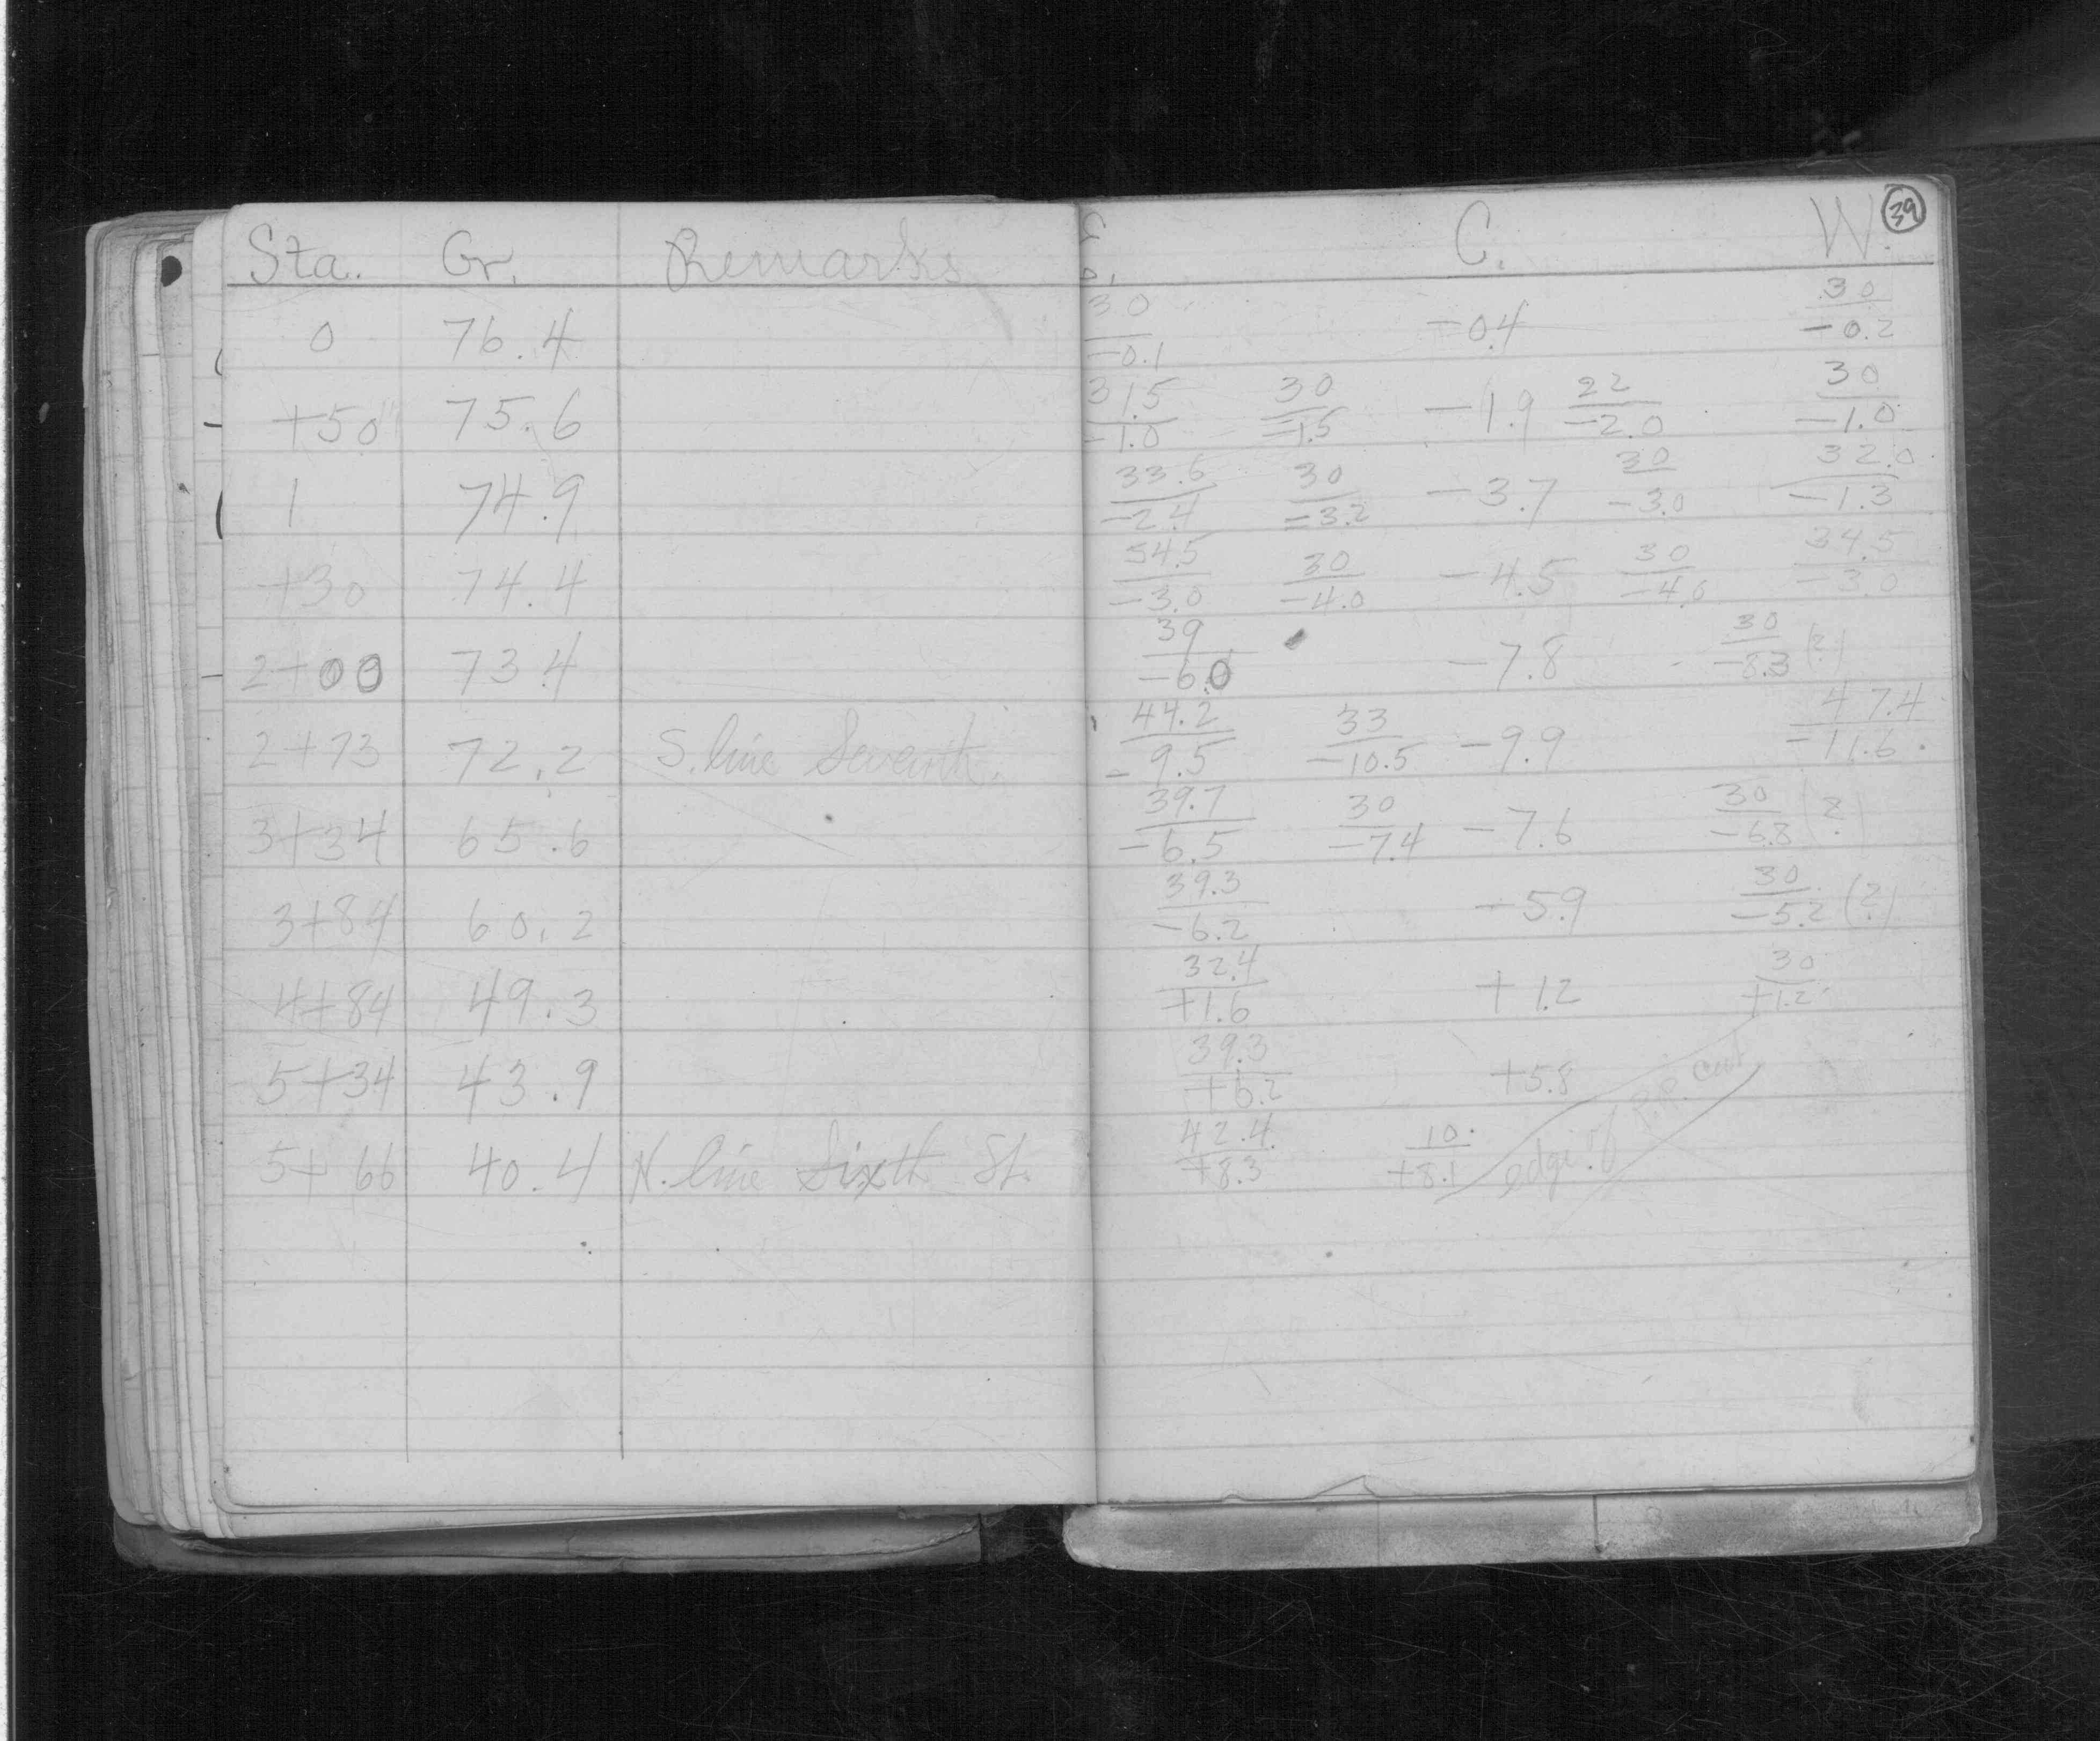 Sta. Gr. Remarks E. C. W. 39
0 76.4 30/-0.1 -0.4 30/-0.2
+50 75.6 31.5/-1.0 30/-1.5 -1.9 22/-2.0 30/-1.0
1 74.9 33.6/-2.4 30/-3.2 -3.7 30/-3.0 32.0/-1.3
+30 74.4 34.5/-3.0 30/-4.0 -4.5 30/-4.0 34.5/-3.0
2+00 73.4 39/-6.0 -7.8 30/-8.3 (?)
2+73 72.2 S. line Seventh. 44.2/-9.5 33/-10.5 -9.9 47.4/-11.6
3+34 65.6 39.7/-6.5 30/-7.4 -7.6 30/-6.8 (?)
3+84 60.2 39.3/-6.2 -5.9 30/-5.2 (?)
4+84 49.3 32.4/+1.6 +1.2 30/+1.2
5+34 43.9 39.3/+6.2 +5.8
5+66 40.4 N. line Sixth St. 42.4/+8.3 10/+8.1 edge of R.R. cut